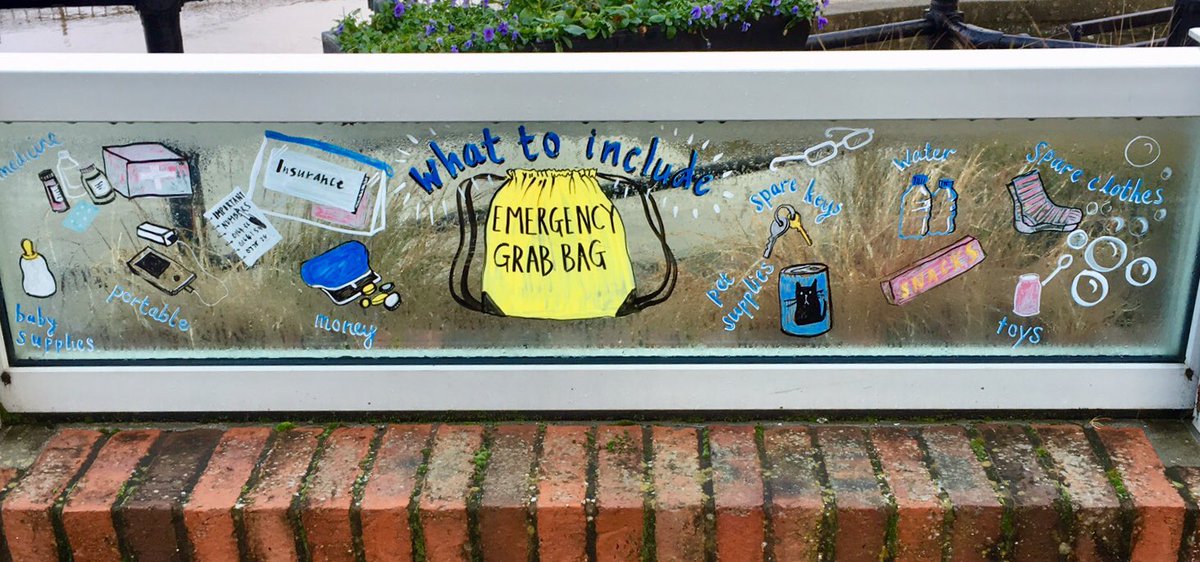 What to include
EMERGENCY
GRAB BAG
medicine
Insurance
IMPORTANT
NUMBERS
baby
supplies
portable
money
Spare keys
Water
Spare clothes
pet
supplies
SNACKS
toys